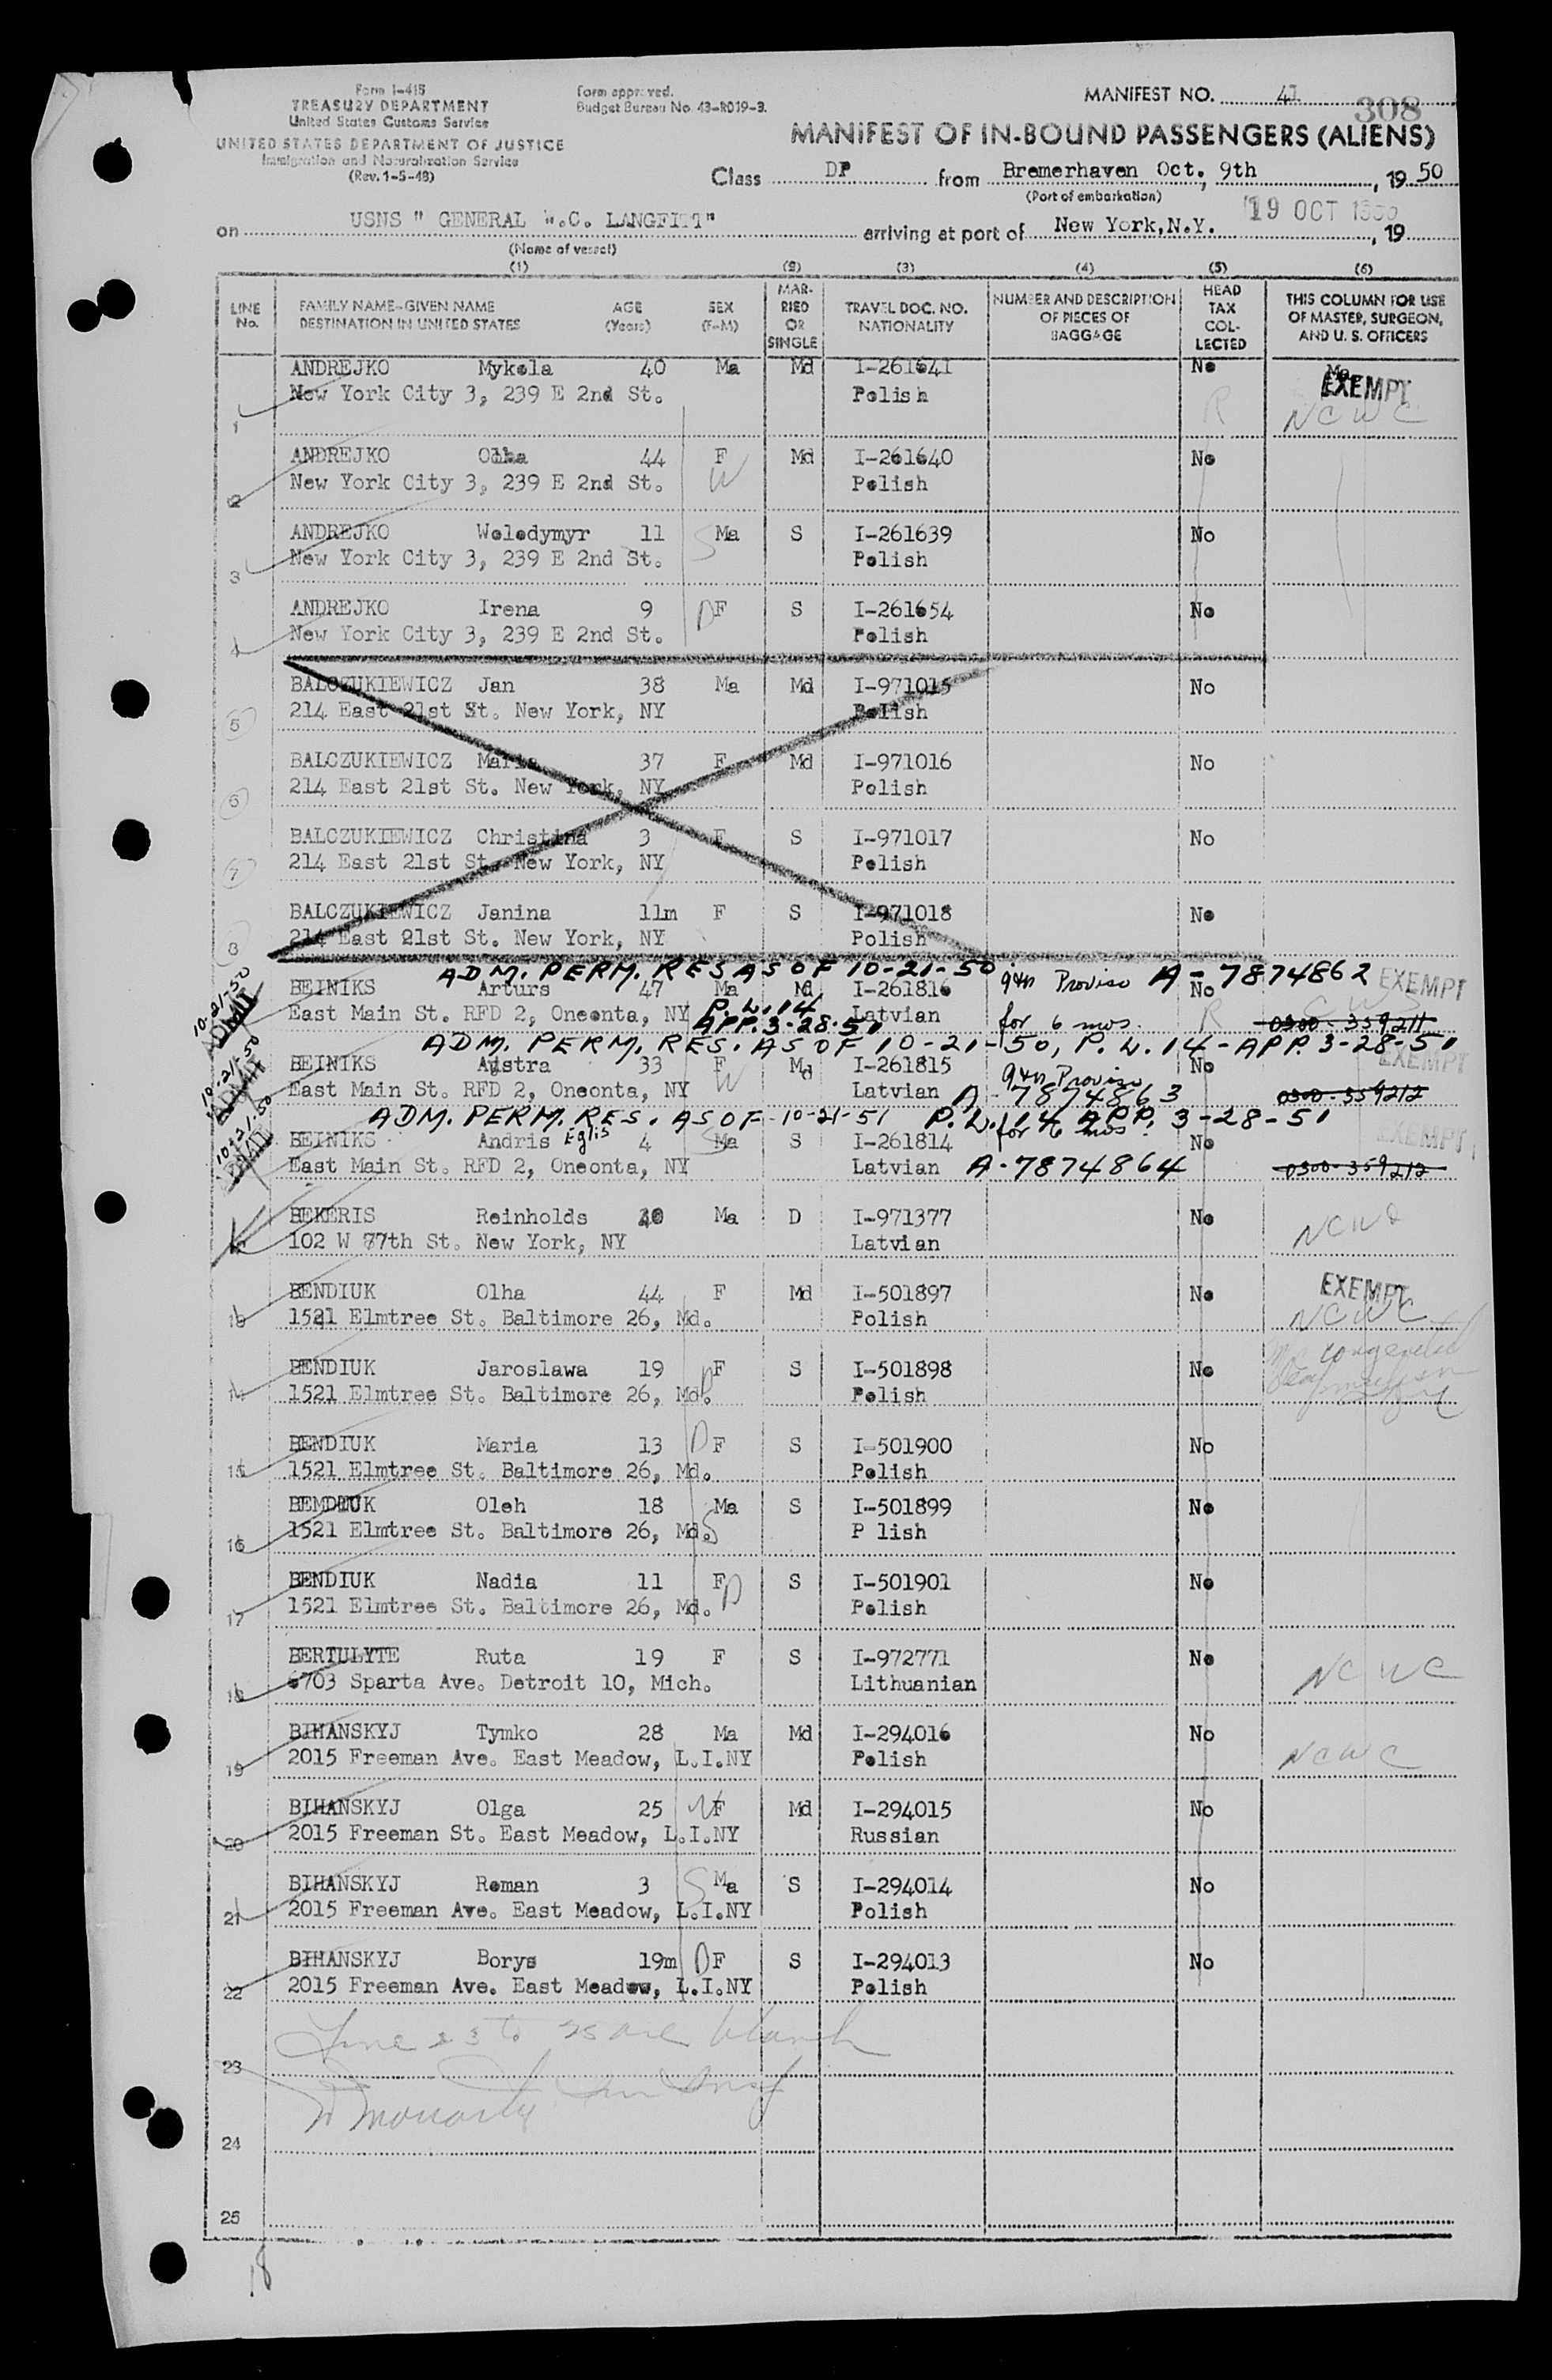 Form I-415
TREASURY DEPARTMENT
United States Customs Service
UNITED STATES DEPARTMENT OF JUSTICE
Immigration and Naturalization Service
(Rev. 1-5-48)
Form approved.
Budget Bureau No. 43-R019-3.
MANIFEST NO. 41
308
MANIFEST OF IN-BOUND PASSENGERS (ALIENS)
Class DP from Bremerhaven Oct. 9th, 19 50
(Port of embarkation)
on USNS " GENERAL W.C. LANGFITT" arriving at port of New York,N.Y. 19 OCT 1950, 19
(Name of vessel)
(1) (2) (3) (4) (5) (6)
LINE No. FAMILY NAME-GIVEN NAME DESTINATION IN UNITED STATES AGE (Years) SEX (F-M) MARRIED OR SINGLE TRAVEL DOC. NO. NATIONALITY NUMBER AND DESCRIPTION OF PIECES OF BAGGAGE HEAD TAX COLLECTED THIS COLUMN FOR USE OF MASTER, SURGEON, AND U. S. OFFICERS
ANDREJKO Mykola 40 Ma Md I-261641 No EXEMPT
1 New York City 3, 239 E 2nd St. Polish R NCWC
ANDREJKO Olha 44 F Md I-261640 No
2 New York City 3, 239 E 2nd St. W Polish
ANDREJKO Wolodymyr 11 S Ma S I-261639 No
3 New York City 3, 239 E 2nd St. Polish
ANDREJKO Irena 9 D F S I-261654 No
4 New York City 3, 239 E 2nd St. Polish
BALCZUKIEWICZ Jan 38 Ma Md I-971015 No
5 214 East 21st St. New York, NY Polish
BALCZUKIEWICZ Maria 37 F Md I-971016 No
6 214 East 21st St. New York, NY Polish
BALCZUKIEWICZ Christina 3 F S I-971017 No
7 214 East 21st St. New York, NY Polish
BALCZUKIEWICZ Janina 11m F S I-971018 No
8 214 East 21st St. New York, NY Polish
ADM. PERM. RES AS OF 10-21-50 9th Proviso A-7874862 EXEMPT
10-21-50 ADMIT BEINIKS Arturs 47 Ma Md I-261816 No
East Main St. RFD 2, Oneonta, NY P.L.14 APP. 3-28-51 Latvian for 6 mos. R 0300-359211
ADM. PERM. RES. AS OF 10-21-50, P.L.14-APP. 3-28-51
10-21-50 ADMIT BEINIKS Austra 33 F Md I-261815 9th Proviso No EXEMPT
East Main St. RFD 2, Oneonta, NY W Latvian A-7874863 0300-359212
ADM. PERM. RES. AS OF 10-21-51 P.L.14 APP. 3-28-51
10-21-50 BEINIKS Andris Eglis 4 S Ma S I-261814 for 6 mos. No EXEMPT
East Main St. RFD 2, Oneonta, NY Latvian A-7874864 0300-359212
BEKERIS Reinholds Ma D I-971377 No
102 W 77th St. New York, NY Latvian NCWC
BENDIUK Olha 44 F Md I-501897 No EXEMPT
13 1521 Elmtree St. Baltimore 26, Md. Polish NCWC
BENDIUK Jaroslawa 19 D F S I-501898 No congenital
14 1521 Elmtree St. Baltimore 26, Md. Polish
BENDIUK Maria 13 D F S I-501900 No
15 1521 Elmtree St. Baltimore 26, Md. Polish
BEMDIUK Oleh 18 Ma S I-501899 No
16 1521 Elmtree St. Baltimore 26, Md. S P lish
BENDIUK Nadia 11 F D S I-501901 No
17 1521 Elmtree St. Baltimore 26, Md. Polish
BERTULYTE Ruta 19 F S I-972771 No
18 6703 Sparta Ave. Detroit 10, Mich. Lithuanian NCWC
BIHANSKYJ Tymko 28 Ma Md I-294016 No
19 2015 Freeman Ave. East Meadow, L.I.NY Polish NCWC
BIHANSKYJ Olga 25 W F Md I-294015 No
20 2015 Freeman St. East Meadow, L.I.NY Russian
BIHANSKYJ Roman 3 S Ma S I-294014 No
21 2015 Freeman Ave. East Meadow, L.I.NY Polish
BIHANSKYJ Borys 19m D F S I-294013 No
22 2015 Freeman Ave. East Meadow, L.I.NY Polish
Line 23 to 25 are blank
23
24
25
18